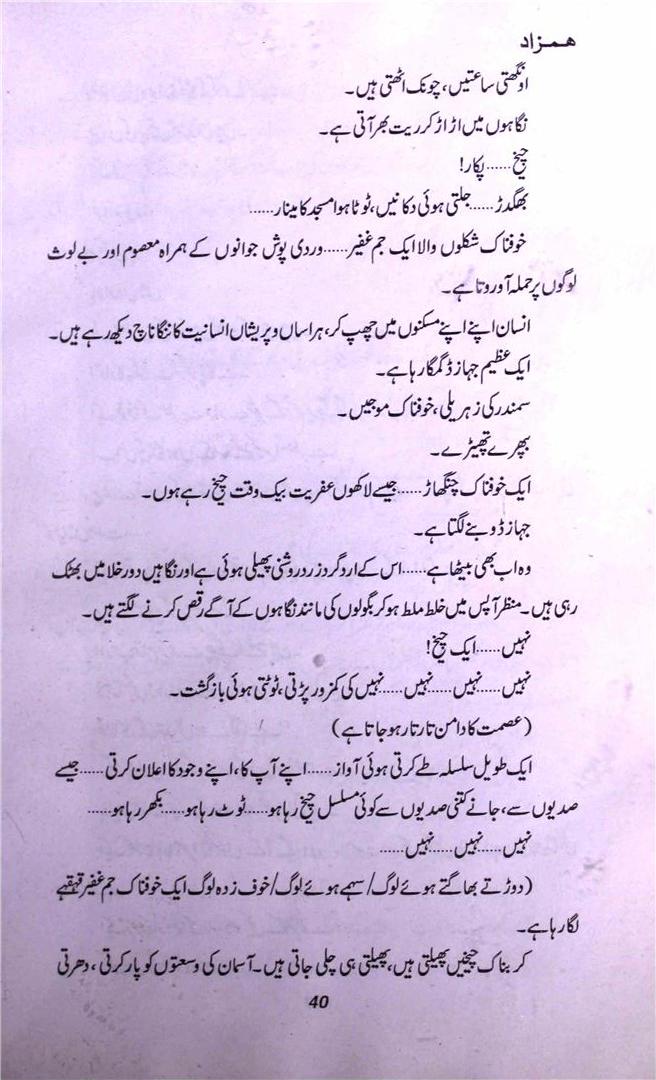 ھمزاد
اونگھتی ساعتیں، چونک اٹھتی ہیں۔
نگاہوں میں اڑ اڑ کر ریت بھر آتی ہے۔
چیخ......پکار!
بھگدڑ......جلتی ہوئی دکانیں، ٹوٹا ہوا مسجد کا مینار......
خوفناک شکلوں والا ایک جم غفیر......وردی پوش جوانوں کے ہمراہ معصوم اور بے لوث
لوگوں پر حملہ آور ہوتا ہے۔
انسان اپنے اپنے مسکنوں میں چھپ کر، ہراساں و پریشاں انسانیت کا ننگا ناچ دیکھ رہے ہیں۔
ایک عظیم جہاز ڈگمگا رہا ہے۔
سمندر کی زہریلی، خوفناک موجیں۔
بپھرے تھپیڑے۔
ایک خوفناک چنگھاڑ......جیسے لاکھوں عفریت بیک وقت چیخ رہے ہوں۔
جہاز ڈوبنے لگتا ہے۔
وہ اب بھی بیٹھا ہے......اس کے اردگرد زرد روشنی پھیلی ہوئی ہے اور نگاہیں دور خلا میں بھٹک
رہی ہیں۔ منظر آپس میں خلط ملط ہو کر بگولوں کی مانند نگاہوں کے آگے رقص کرنے لگتے ہیں۔
نہیں......ایک چیخ!
نہیں......نہیں......نہیں......نہیں کی کمزور پڑتی، ٹوٹتی ہوئی بازگشت۔
(عصمت کا دامن تار تار ہو جاتا ہے)
ایک طویل سلسلہ طے کرتی ہوئی آواز......اپنے آپ کا، اپنے وجود کا اعلان کرتی......جیسے
صدیوں سے، جانے کتنی صدیوں سے کوئی مسلسل چیخ رہا ہو......ٹوٹ رہا ہو......بکھر رہا ہو......
نہیں......نہیں......نہیں......
(دوڑتے بھاگتے ہوئے لوگ/سہمے ہوئے لوگ/خوف زدہ لوگ ایک خوفناک جم غفیر قہقہے
لگا رہا ہے۔
کربناک چیخیں پھیلتی ہیں، پھیلتی ہی چلی جاتی ہیں۔ آسمان کی وسعتوں کو پار کرتی، دھرتی
40